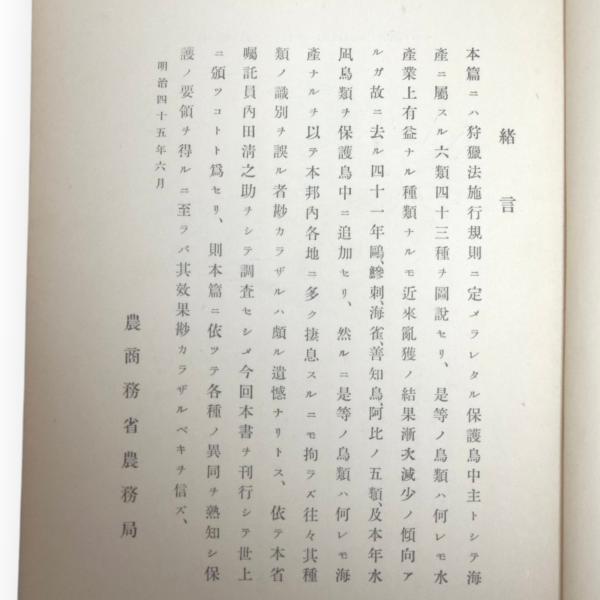 緒言
本篇ニハ狩獵法施行規則ニ定メラレタル保護鳥中主トシテ海
產ニ屬スル六類四十三種ヲ圖說セリ、是等ノ鳥類ハ何レモ水
產業上有益ナル種類ナルモ近來亂獲ノ結果漸次減少ノ傾向ア
ルガ故ニ去ル四十一年鷗、鰺刺、海雀、善知鳥、阿比ノ五類、及本年水
凪鳥類ヲ保護鳥中ニ追加セリ、然ルニ是等ノ鳥類ハ何レモ海
產ナルヲ以テ本邦內各地ニ多ク捿息スルニモ拘ラズ往々其種
類ノ識別ヲ誤ル者尠カラザルハ頗ル遺憾ナリトス、依テ本省
囑託員內田淸之助ヲシテ調査セシメ今回本書ヲ刊行シテ世上
ニ頒ツコトト爲セリ、則本篇ニ依ツテ各種ノ異同ヲ熟知シ保
護ノ要領ヲ得ルニ至ラバ其效果尠カラザルベキヲ信ズ、
明治四十五年六月
農商務省農務局